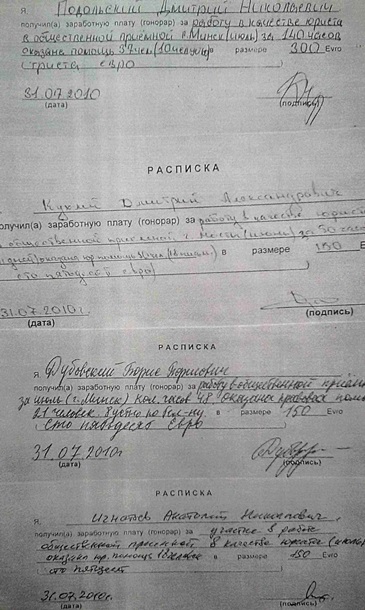 Я Подольский Дмитрий Николаевич
получил(а) заработную плату (гонорар) за работу в качестве юриста
в общественной приёмной г. Минск (июль) за 140 часов
оказана помощь 37 чел (10 в размере 300 Evro
(триста евро)
31.07.2010
(дата) (подпись)
РАСПИСКА
Дмитрий Александрович
получил(а) заработную плату (гонорар) за работу в качестве юриста
общественной приемной г. Мосты (июль) за 50 часов
оказана юр. помощь в размере 150 Evro
сто пятьдесят евро)
31.07.2010г.
(дата) (подпись)
РАСПИСКА
Я, Дубовский Борис Борисович
получил(а) заработную плату (гонорар) за работу в общественной приёмной
за июль (г. Минск) кол. часов 48. Оказана правовая
21 человек. 8 устно в размере 150 Evro
(Сто пятьдесят Евро)
31.07.2010г
(дата) (подпись)
РАСПИСКА
Я, Игнатьев Анатолий
получил(а) заработную плату (гонорар) за участие в работе
общественной приемной в качестве юриста (июль)
оказано юр. помощь в размере 150 Evro
сто пятдесят
31.07.2010г.
(дата) (подпись)